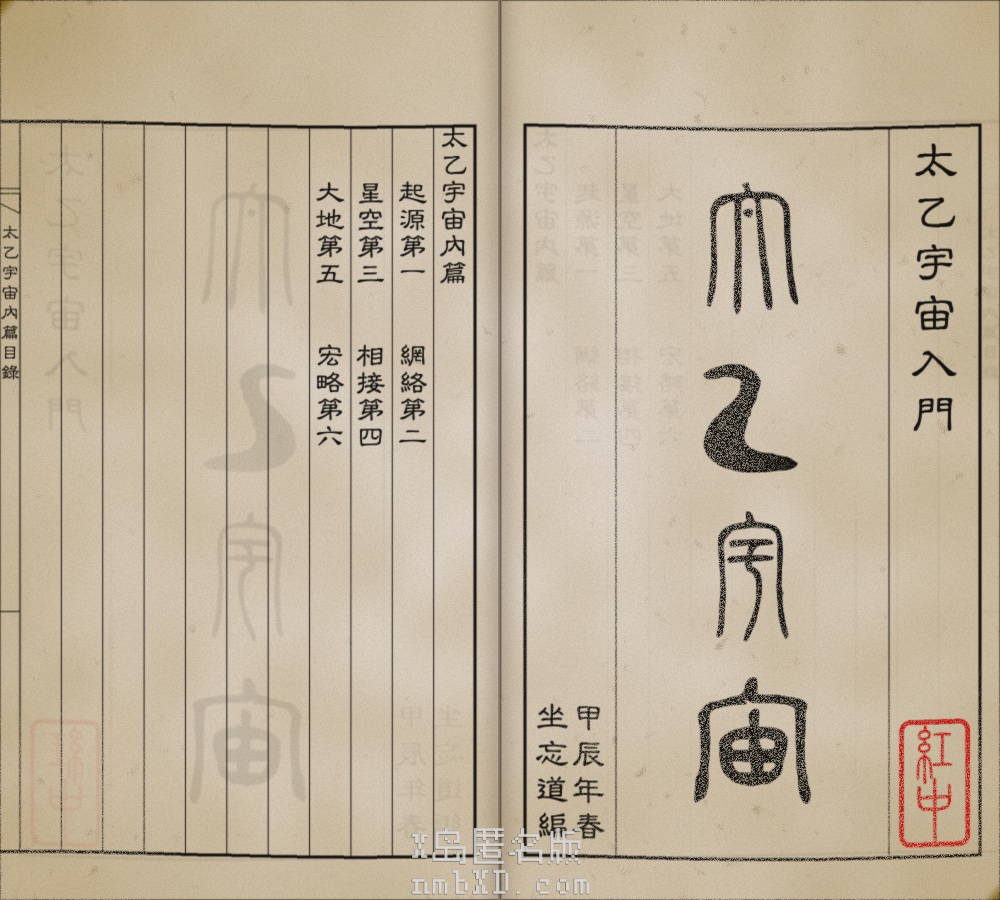 太乙宇宙入門
太乙宇宙
甲辰年春
坐忘道編
紅中
太乙宇宙內篇
起源第一 網絡第二
星空第三 相接第四
大地第五 宏略第六
太乙宇宙內篇目錄
X岛匿名版
nmbXD.com